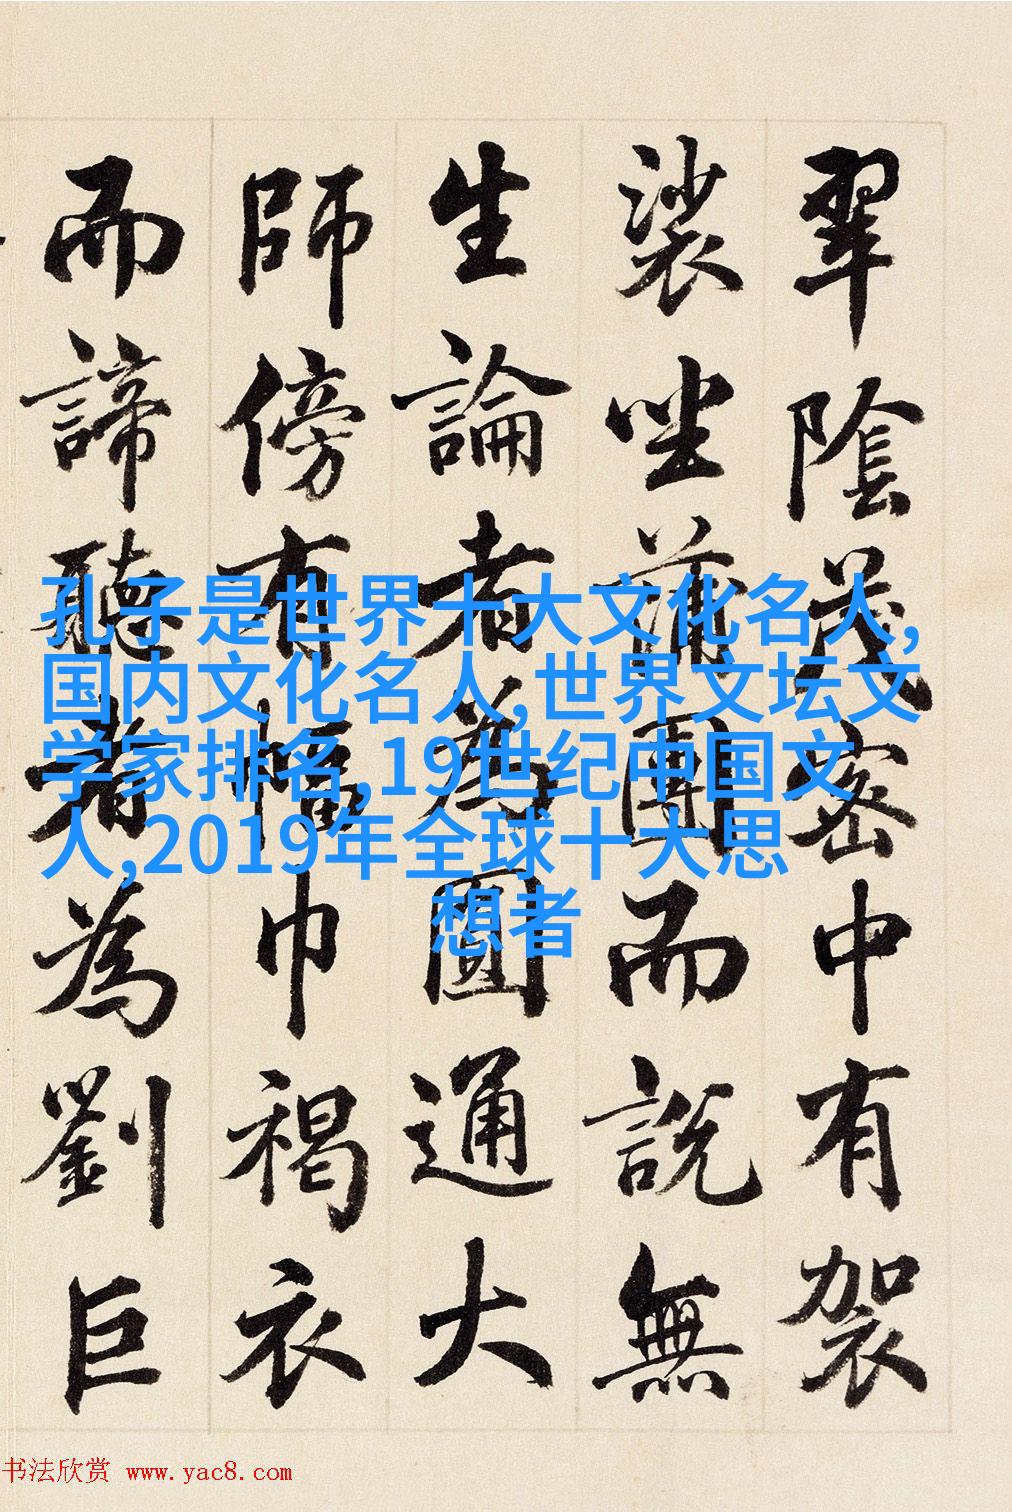 翠陰茂密中有袈
裟坐蒲團而說無
生論者為圓通大
師傍有幅巾褐衣
而諦聽者為劉巨
孔子是世界十大文化名人,
国内文化名人,世界文坛文
学家排名,19世纪中国文
人,2019年全球十大思
想者
书法欣赏 www.yac8.com